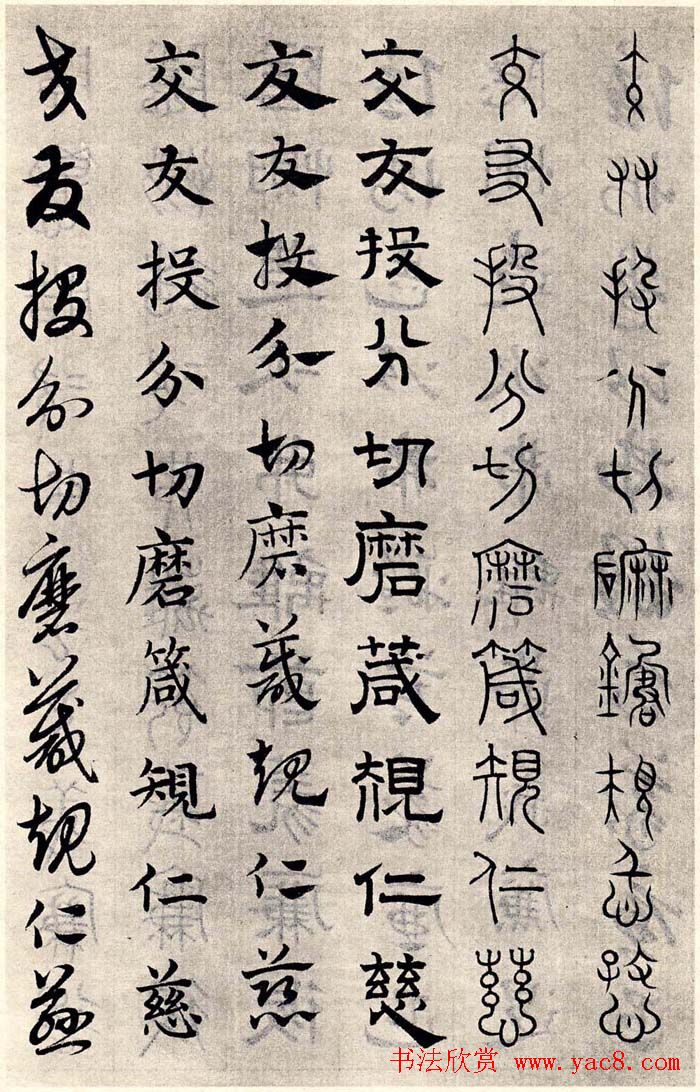 交友投分切磨箴規仁慈
交友投分切磨箴規仁慈
交友投分切磨箴規仁慈
交友投分切磨箴規仁慈
交友投分切磨箴規仁慈
交友投分切磨箴規仁慈
书法欣赏 www.yac8.com